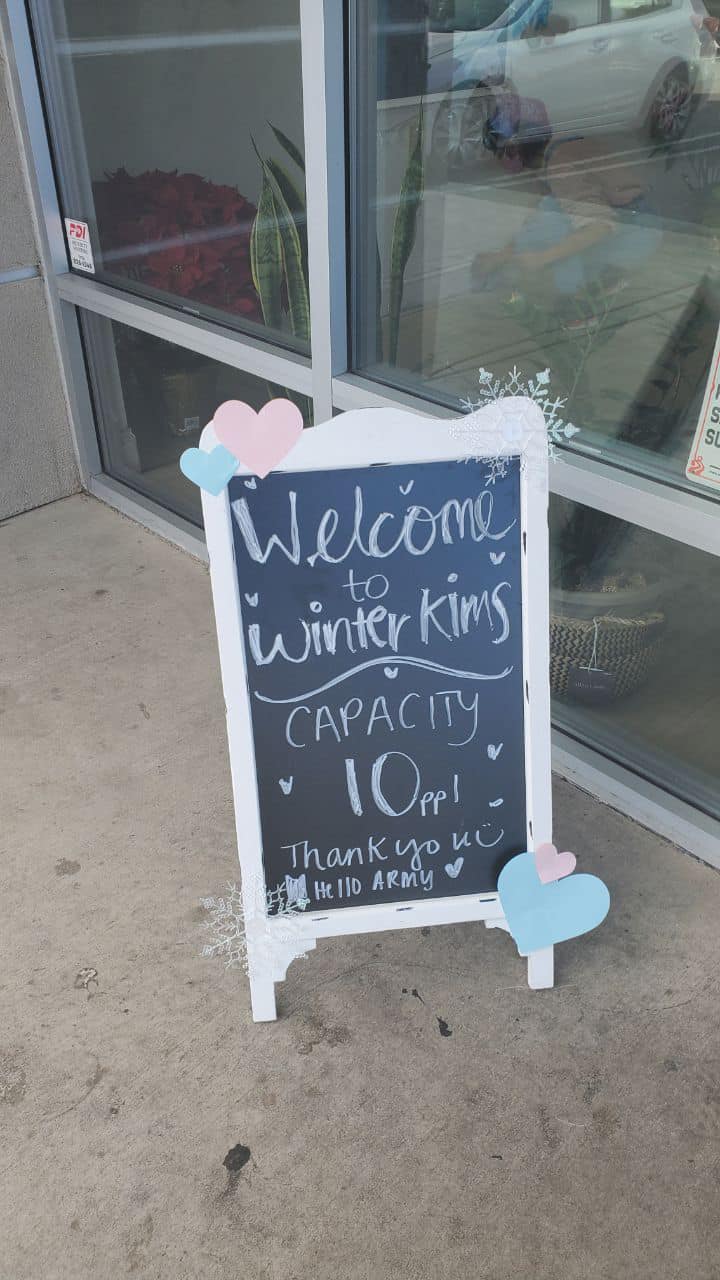 Welcome
to
winter Kims
CAPACITY
10ppl
Thank you
Hello ARMY
PDI